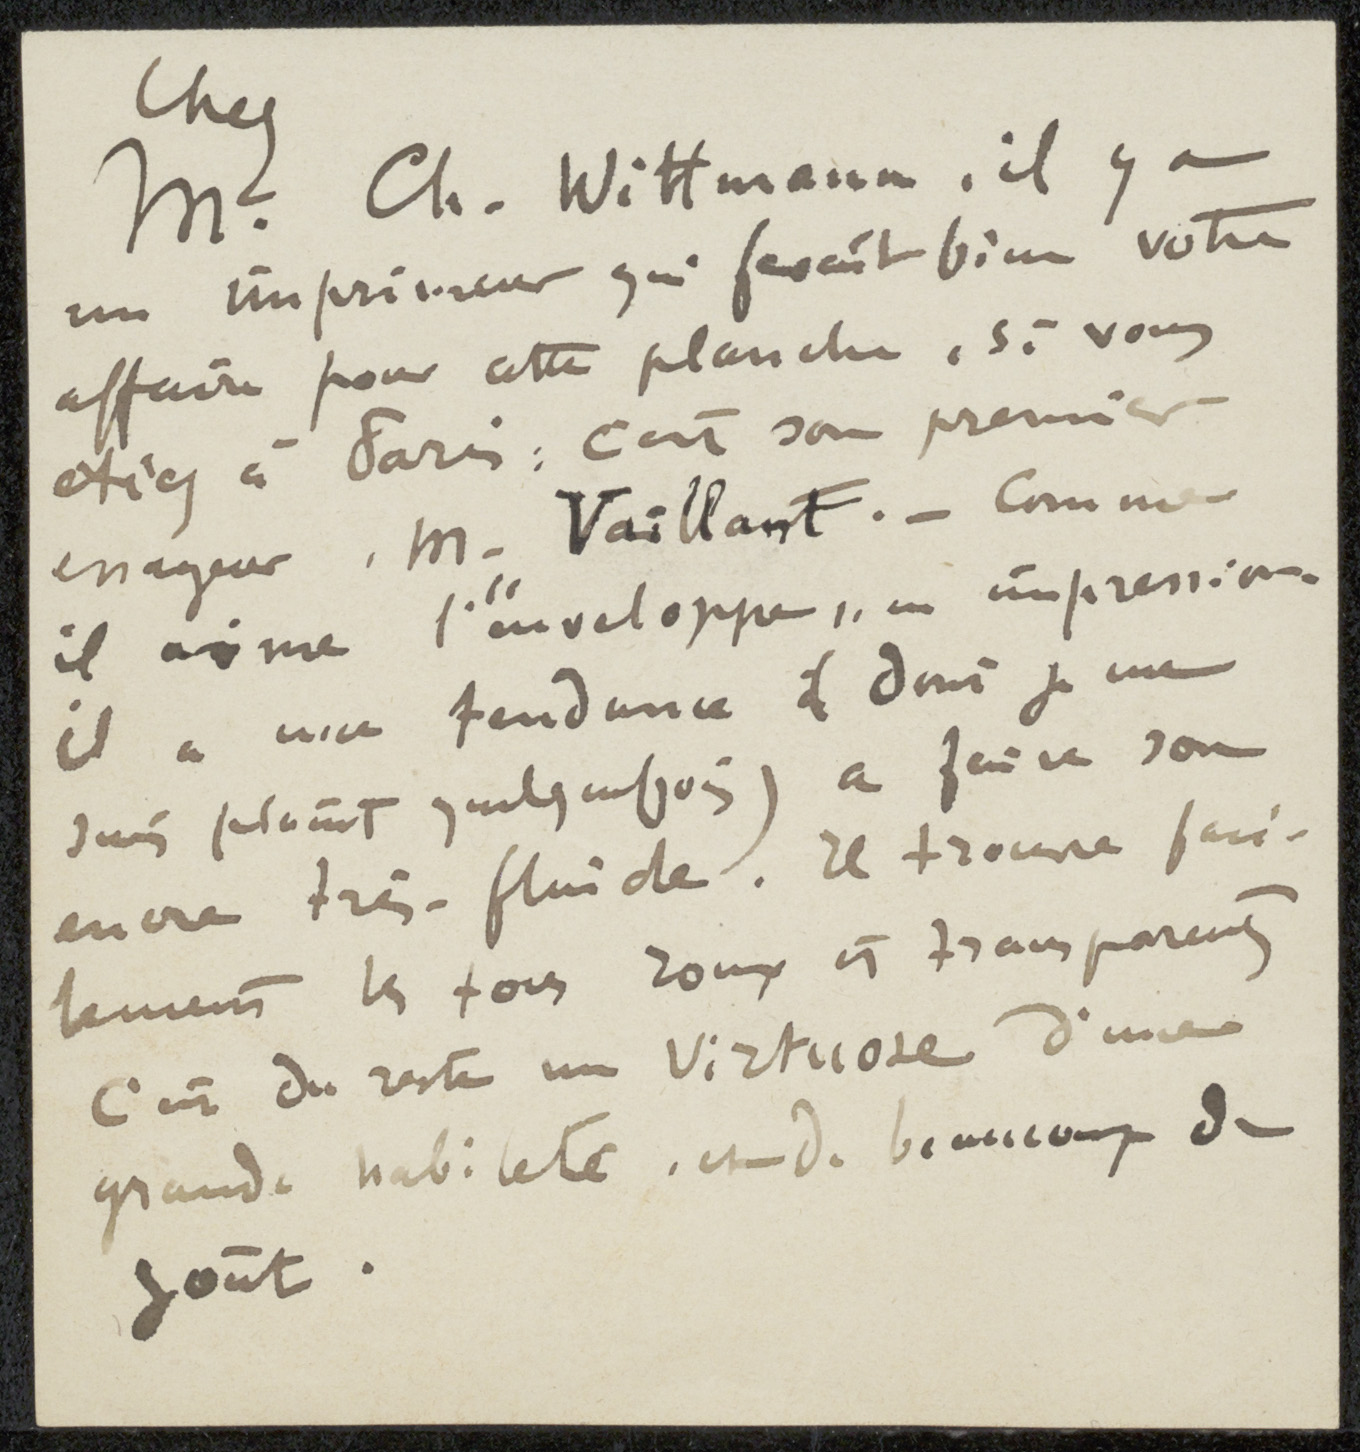 Chez
Mr. Ch. Wittmann, il y a
un imprimeur qui ferait bien votre
affaire pour cette planche, si vous
etiez à Paris ; c'est son premier
essayeur, M. Vaillant. – Comme
il aime l'"enveloppe" en impression.
il a une tendance (dont je me
suis plaint quelquefois) a faire son
encre très-fluide. Il trouve faci-
lement les tons roux et transparents
C'est du reste un virtuose d'une
grande habileté, et de beaucoup de
goût.